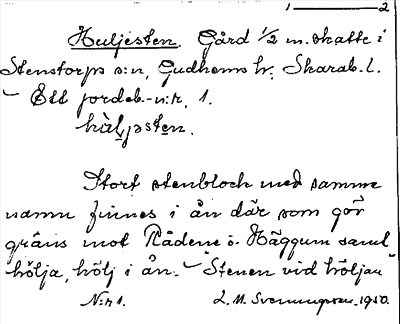 1 ——— 2
Huljesten. Gård 1/2 m. skatte i
Stenstorps s:n, Gudhems hr, Skarab. l.
– Ett jordeb.-n:r, 1.
Stort stenblock med samma
namn finnes i ån där som gör
gräns mot Rådene o. Häggum samt
hölja, hölj i ån. – "Stenen vid höljan"
N:r 1. L. M. Svenungsson. 1950.